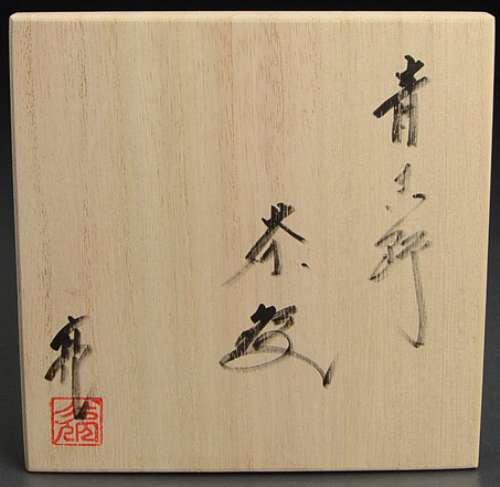 青志野
茶碗